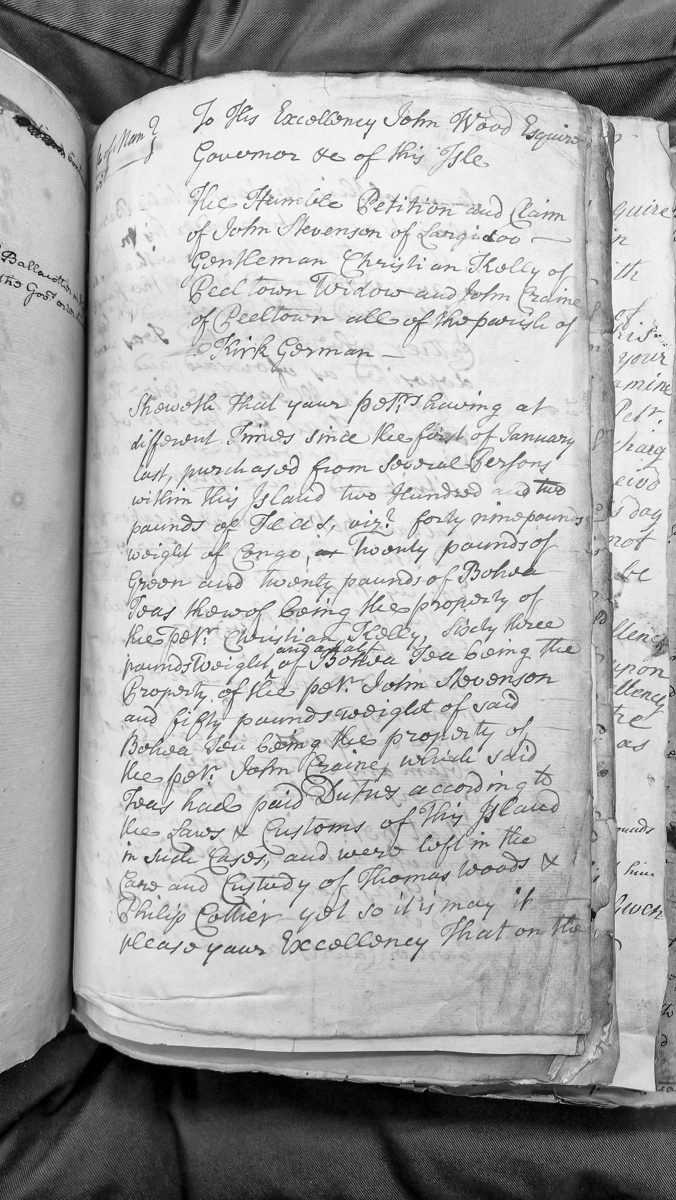 To His Excellency John Wood Esquire
Governor &c of this Isle
The Humble Petition and Claim
of John Stevenson of
Gentleman Christian Kelly of
Peel town Widow and John Craine
of Peeltown all of the parish of
Kirk German —
Sheweth That your petrs. having at
different Times since the first of January
last, purchased from several Persons
within this Island two Hundred and two
pounds of Teas, vizt. forty nine pounds
weight of Congo, Twenty pounds of
Green and twenty pounds of Bohea
Teas thereof being the property of
the petr. Christian Kelly, Sixty three
pounds weight
of Bohea Tea being the
Property of the petr. John Stevenson
and fifty pounds weight of said
Bohea Tea being the property of
the petr. John Craine, which said
Teas had paid Dutys according to
the Laws & Customs of this Island
in such Cases, and were left in the
Care and Custody of Thomas Woods &
Philip Collier yet so it is may it
please your Excellency That on the